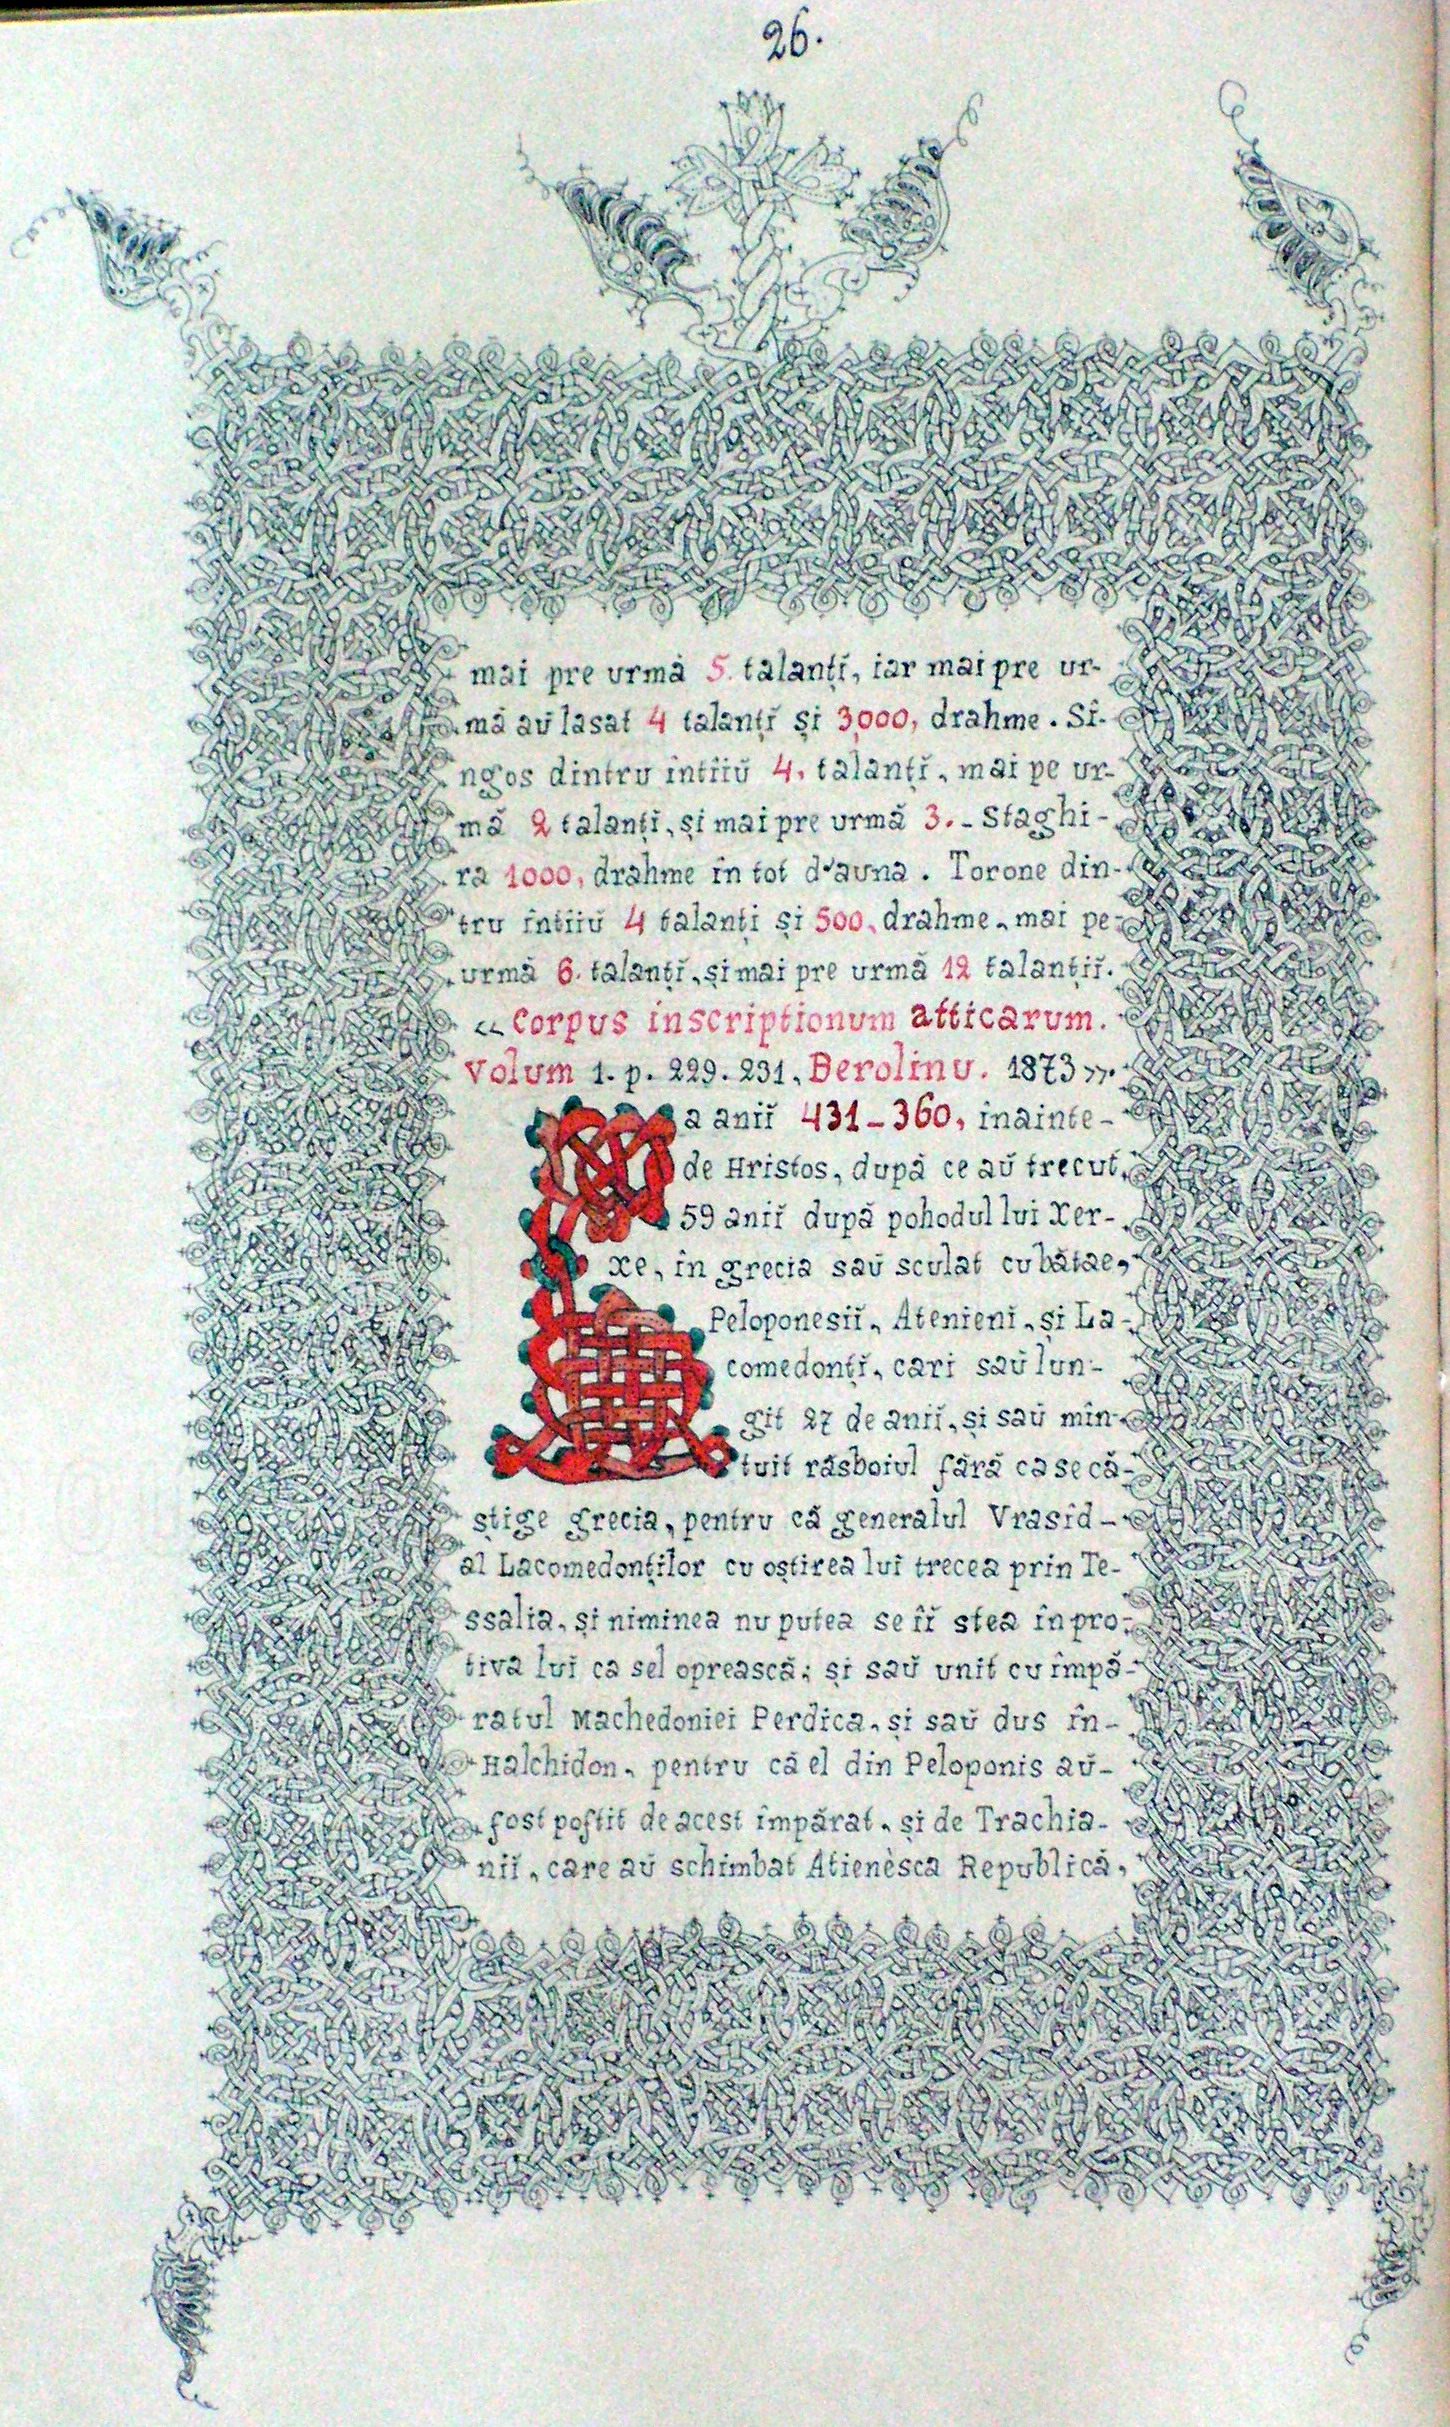 26.
mai pre urmă 5. talanțĭ, iar mai pre ur-
mă aŭ lasat 4 talanțĭ și 3000, drahme. Sî-
ngos dintru întîiŭ 4, talanțĭ, mai pe ur-
mă 2 talanțĭ, și mai pre urmă 3. - Staghi-
ra 1000, drahme în tot d'auna. Torone din-
tru întîiŭ 4 talanțĭ și 500, drahme, mai pe
urmă 6. talanțĭ, și mai pre urmă 12 talanțiĭ.
«Corpus inscriptionum atticarum.
Volum 1. p. 229. 231, Berolinu. 1873».
La aniĭ 431-360, înainte-
de Hristos, după ce aŭ trecut,
59 aniĭ după pohodul lui Xer-
xe, în grecia saŭ sculat cu bătae,
Peloponesiĭ, Atenieni, și La-
comedonțĭ, cari saŭ lun-
git 27 de aniĭ, și saŭ mîn-
tuit răsboiul fără ca se câ-
știge grecia, pentru că generalul Vrasîd-
al Lacomedonților cu oștirea lui trecea prin Te-
ssalia, și niminea nu putea se îĭ stea în pro-
tiva lui ca sel oprească; și saŭ unit cu împă-
ratul Machedoniei Perdica, și saŭ dus în-
Halchidon, pentru că el din Peloponis aŭ-
fost poftit de acest împărat, și de Trachia-
niĭ, care aŭ schimbat Atienèsca Republică,